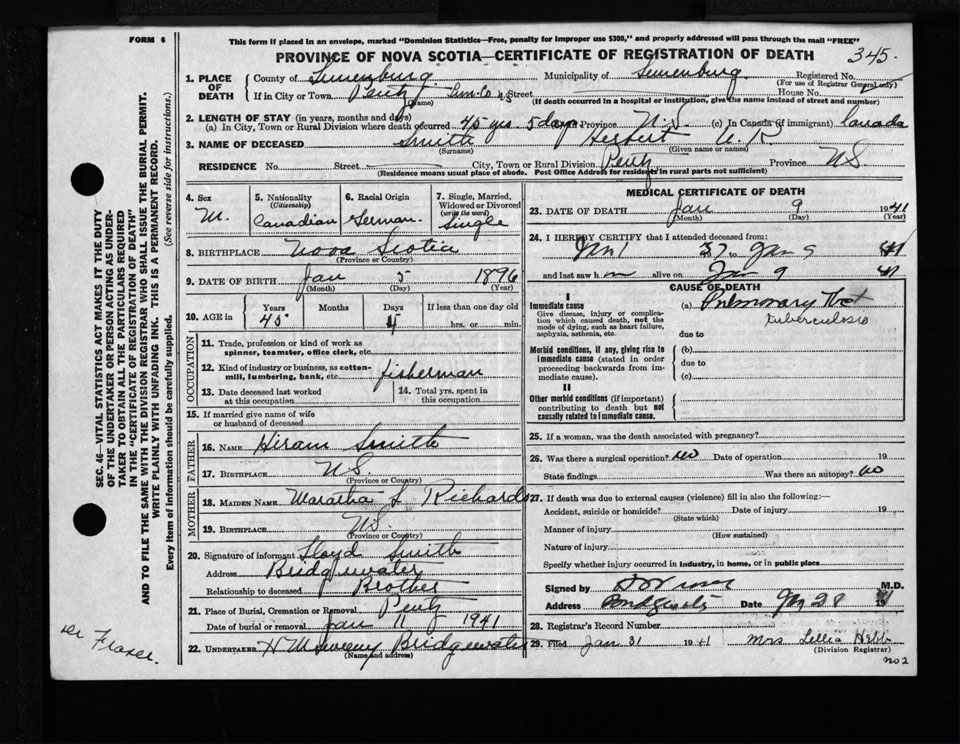 FORM 6
This form if placed in an envelope, marked "Dominion Statistics—Free, penalty for improper use $300," and properly addressed will pass through the mail "FREE"
PROVINCE OF NOVA SCOTIA—CERTIFICATE OF REGISTRATION OF DEATH 345.
1. PLACE OF DEATH County of Lunenburg Municipality of Lunenburg Registered No.
(For use of Registrar General only)
If in City or Town Street House No.
(Name) (If death occurred in a hospital or institution, give the name instead of street and number)
2. LENGTH OF STAY (in years, months and days)
(a) In City, Town or Rural Division where death occurred 45 yrs 5 days Province N.S. (c) In Canada (if immigrant) Canada
3. NAME OF DECEASED Smith Herbert
(Surname) (Given name or names)
RESIDENCE No. Street City, Town or Rural Division Province N.S
(Residence means usual place of abode. Post Office Address for residents in rural parts not sufficient)
4. Sex M.
5. Nationality (Citizenship) Canadian
6. Racial Origin German
7. Single, Married, Widowed or Divorced (write the word) Single
8. BIRTHPLACE Nova Scotia
(Province or Country)
9. DATE OF BIRTH Jan 5 1896
(Month) (Day) (Year)
10. AGE in Years 45 Months Days 4 If less than one day old
hrs. or min.
OCCUPATION
11. Trade, profession or kind of work as spinner, teamster, office clerk, etc.
12. Kind of industry or business, as cotton-mill, lumbering, bank, etc. fisherman
13. Date deceased last worked at this occupation
14. Total yrs. spent in this occupation
15. If married give name of wife or husband of deceased
FATHER
16. NAME Hiram Smith
17. BIRTHPLACE N.S.
(Province or Country)
MOTHER
18. MAIDEN NAME Richardson
19. BIRTHPLACE N.S.
(Province or Country)
20. Signature of informant Lloyd Smith
Address Bridgewater
Relationship to deceased Brother
21. Place of Burial, Cremation or Removal
Date of burial or removal Jan 11 1941
22. UNDERTAKER Bridgewater
(Name and address)
MEDICAL CERTIFICATE OF DEATH
23. DATE OF DEATH Jan 9 1941
(Month) (Day) (Year)
24. I HEREBY CERTIFY that I attended deceased from:
37 to Jan 9 41
and last saw h m alive on Jan 9 41
CAUSE OF DEATH
I
Immediate cause (a) Pulmonary
Give disease, injury or complication which caused death, not the mode of dying, such as heart failure, asphyxia, asthenia, etc.
tuberculosis
due to
Morbid conditions, if any, giving rise to immediate cause (stated in order proceeding backwards from immediate cause).
(b)
due to
(c)
II
Other morbid conditions (if important) contributing to death but not causally related to immediate cause.
25. If a woman, was the death associated with pregnancy?
26. Was there a surgical operation? no Date of operation 19
State findings Was there an autopsy? no
27. If death was due to external causes (violence) fill in also the following:—
Accident, suicide or homicide? Date of injury 19
(State which)
Manner of injury
(How sustained)
Nature of injury
Specify whether injury occurred in industry, in home, or in public place
Signed by M.D.
Address Date 28 19 41
28. Registrar's Record Number
29. Filed Jan 31 1941 Mrs Lellia Hebb
(Division Registrar)
no 2
SEC. 46—VITAL STATISTICS ACT MAKES IT THE DUTY
OF THE UNDERTAKER OR PERSON ACTING AS UNDER-
TAKER TO OBTAIN ALL THE PARTICULARS REQUIRED
IN THE "CERTIFICATE OF REGISTRATION OF DEATH"
AND TO FILE THE SAME WITH THE DIVISION REGISTRAR WHO SHALL ISSUE THE BURIAL PERMIT.
WRITE PLAINLY WITH UNFADING INK. THIS IS A PERMANENT RECORD.
Every item of information should be carefully supplied. (See reverse side for instructions.)
Fraser.